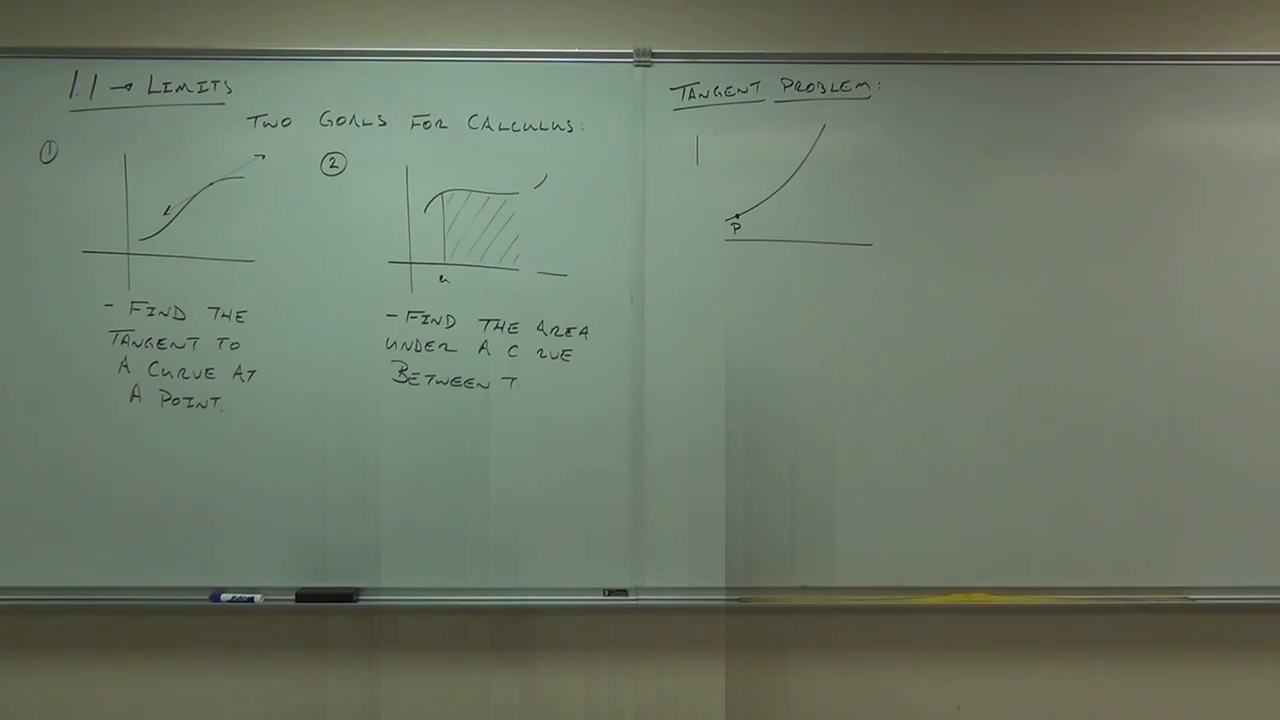 1.1 → LIMITS
TWO GOALS FOR CALCULUS:
①
②
a
- FIND THE
TANGENT TO
A CURVE AT
A POINT.
- FIND THE AREA
UNDER A C RVE
BETWEEN T
TANGENT PROBLEM:
P